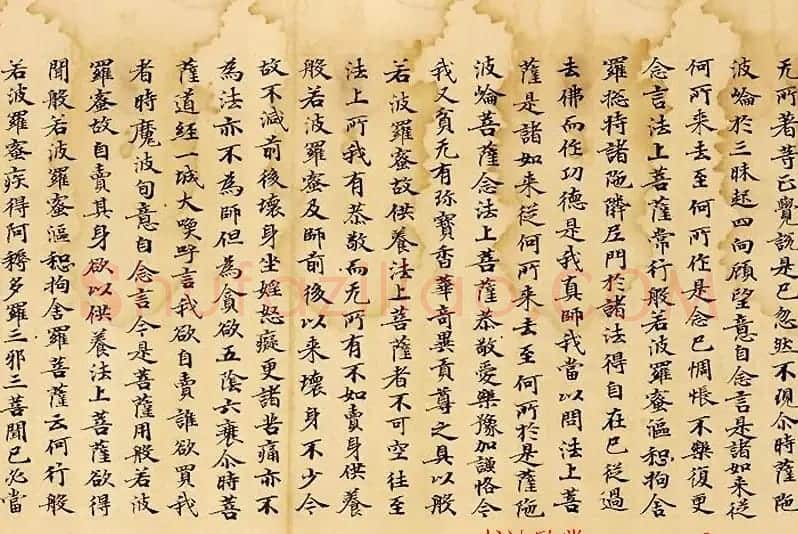 无所著等正覺說是已忽然不現尒時薩陁
波崘於三昧起四向顧望意自念言是諸如来從
何所来去至何所作是念已惆悵不樂復更
念言法上菩薩常行般若波羅蜜漚惒拘舍
羅捴持諸陁隣尼門於諸法得自在已從過
去佛而作功德是我真師我當以問法上菩
薩是諸如来從何所来去至何所於是薩陁
波崘菩薩念法上菩薩恭敬愛樂豫加謙恪今
我又貧无有珎寶香華奇異貢尊之具以般
若波羅蜜故供養法上菩薩者不可空往至
法上所我有恭敬而无所有不如賣身供養
般若波羅蜜及師前後以来壞身不少今
故不減前後壞身坐婬怒癡更諸苦痛亦不
為法亦不為師但為貪欲五陰六衰尒時菩
薩道經一城大喚呼言我欲自賣誰欲買我
者時魔波旬意自念言今是菩薩用般若波
羅蜜故自賣其身欲以供養法上菩薩欲得
聞般若波羅蜜漚惒拘舍羅菩薩云何行般
若波羅蜜疾得阿耨多羅三邪三菩聞已必當
Shufaziliao.COM